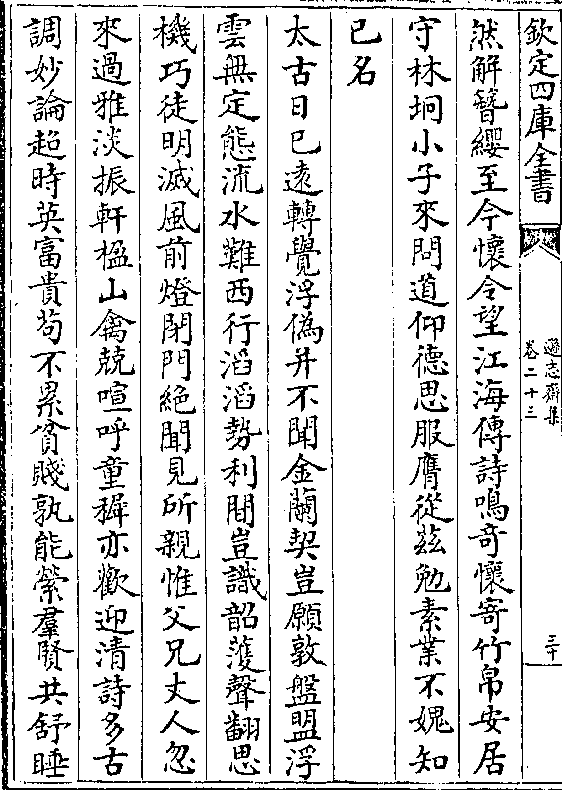 欽定四庫全書
遜志齋集
卷二十三
三十
然解簪纓至今懷令望江海傳詩鳴奇懷寄竹帛安居
守林坰小子來問道仰德思服膺從兹勉素業不媿知
已名
太古日已遠轉覺浮偽并不聞金蘭契豈願敦盤盟浮
雲無定態流水難西行滔滔勢利間豈識韶濩聲翻思
機巧徒明滅風前燈閉門絶聞見所親惟父兄丈人忽
來過雅淡振軒楹山禽競喧呼童穉亦歡迎清詩多古
調妙論超時英富貴苟不累貧賤孰能縈羣賢共舒睡